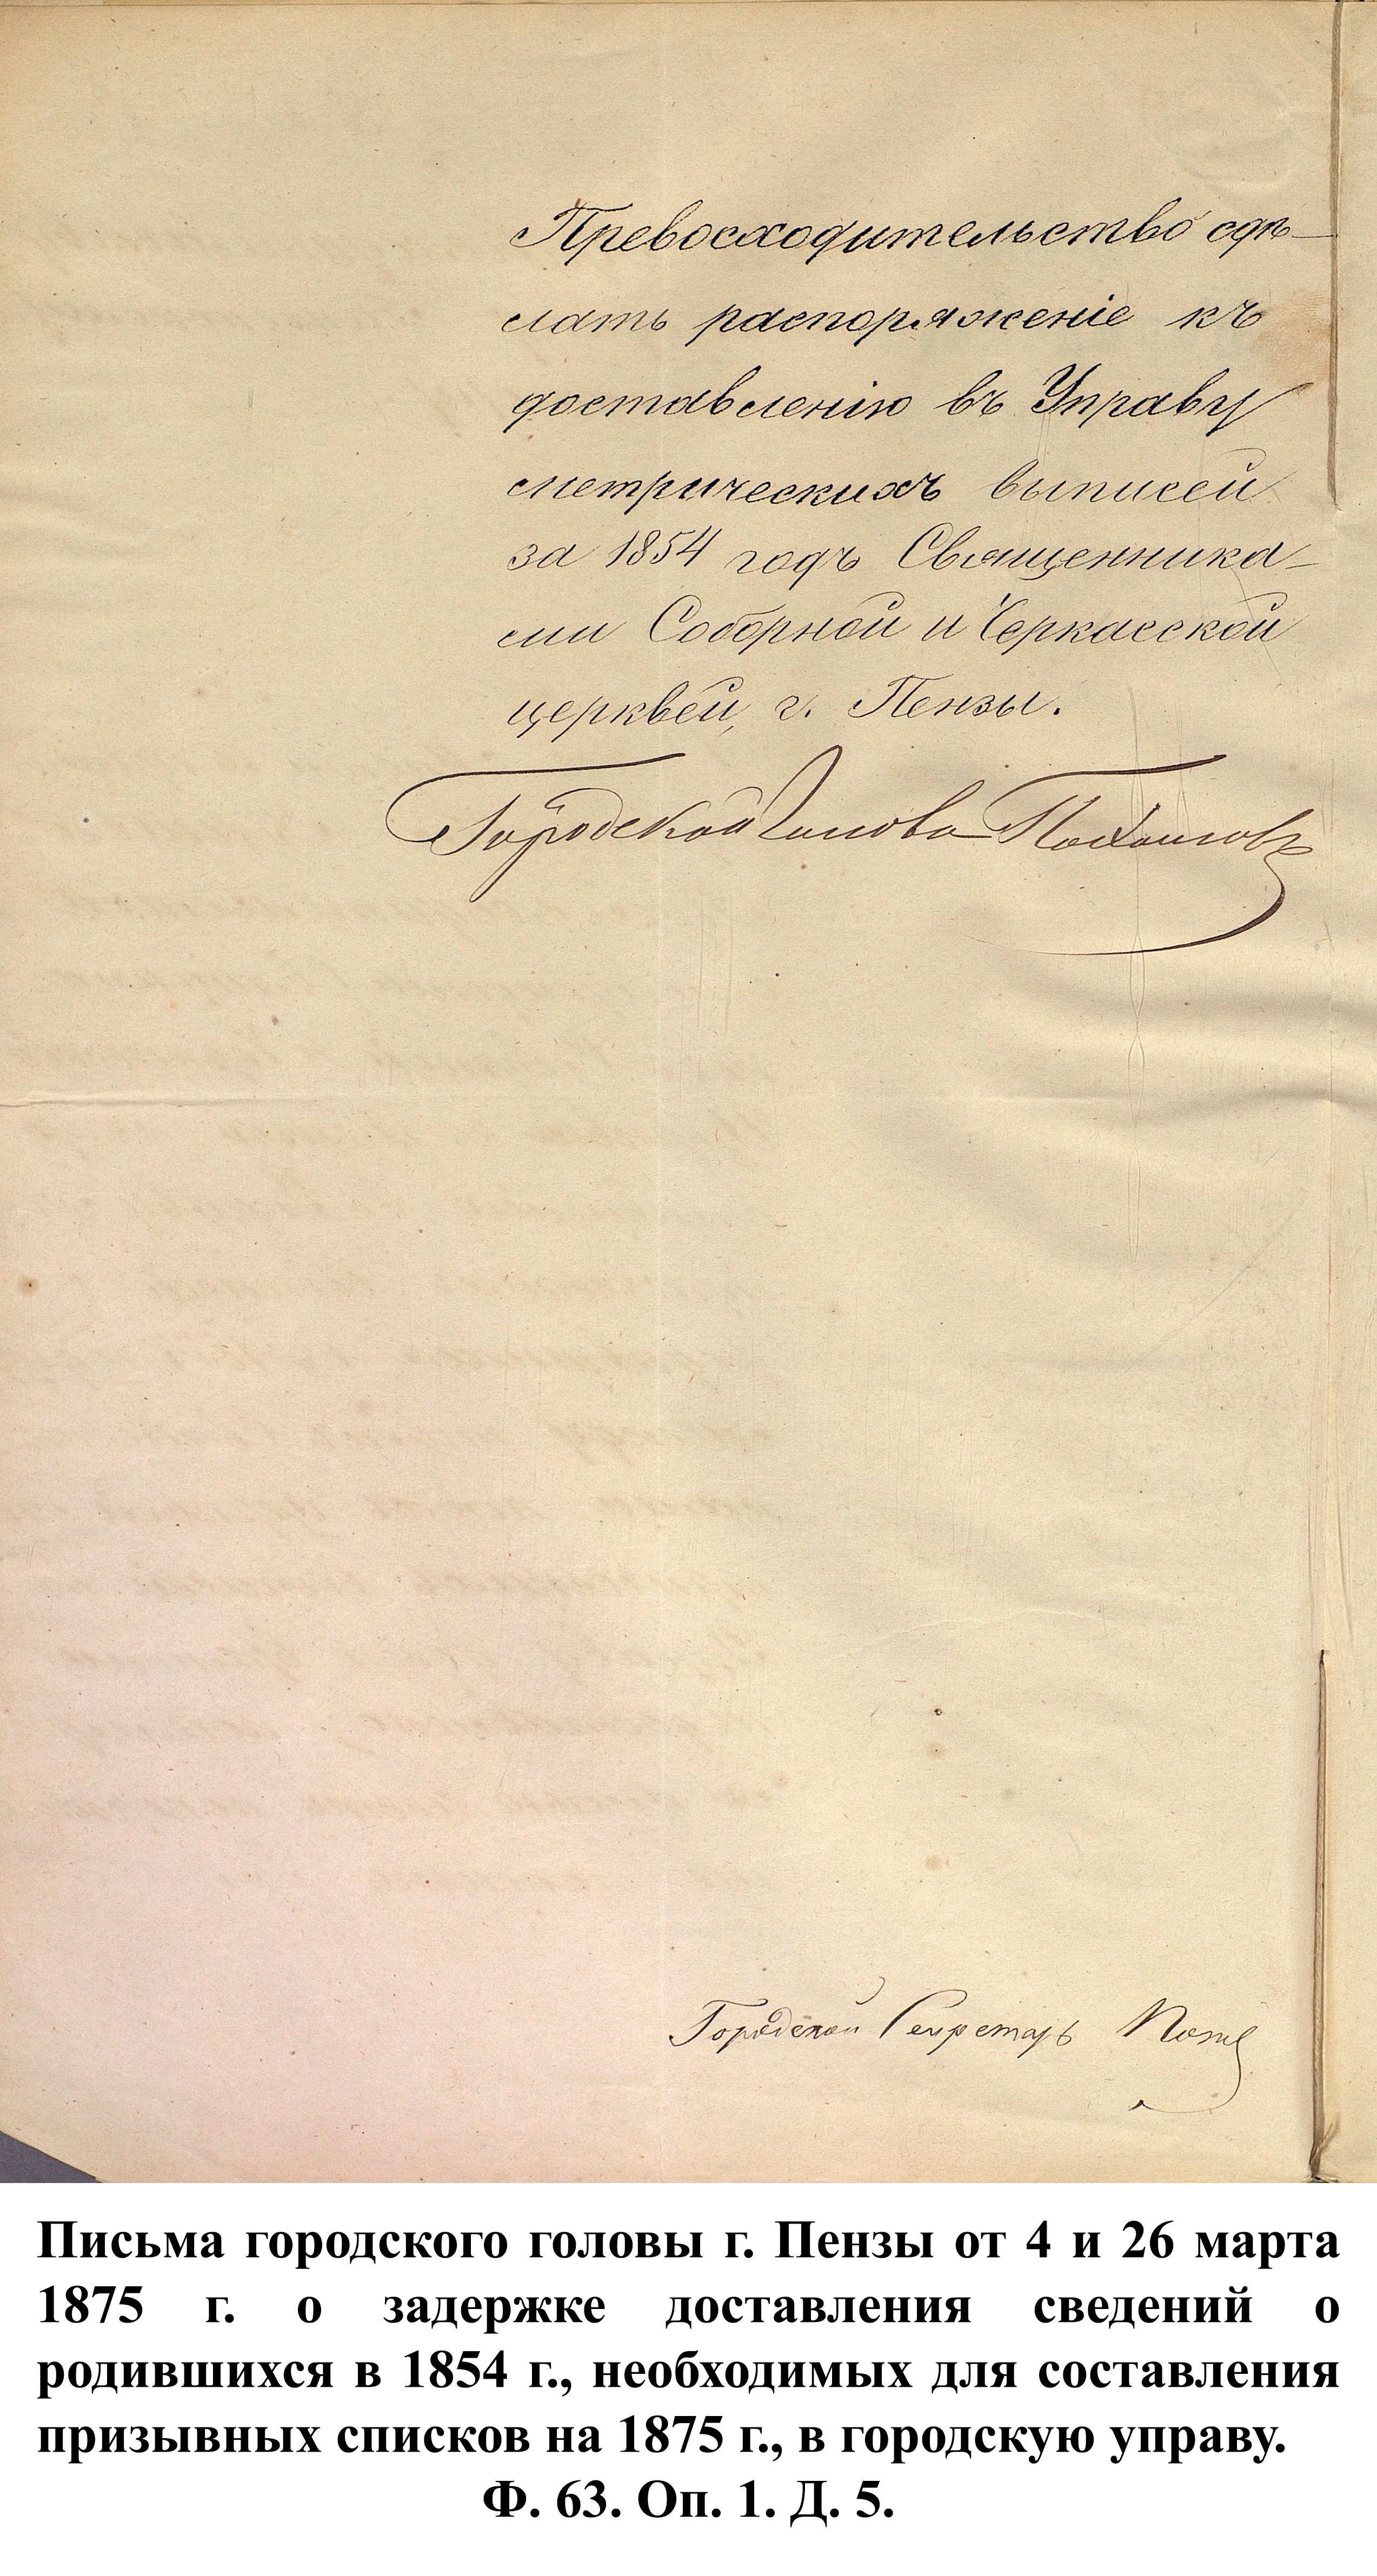 Превосходительство сдѣ-
лать распоряженіе къ
доставленію въ Управу
метрическихъ выписей
за 1854 годъ Священника-
ми Соборной и Черкасской
церквей, г. Пензы.
Городской Голова
Городской Секретарь
Письма городского головы г. Пензы от 4 и 26 марта
1875 г. о задержке доставления сведений о
родившихся в 1854 г., необходимых для составления
призывных списков на 1875 г., в городскую управу.
Ф. 63. Оп. 1. Д. 5.